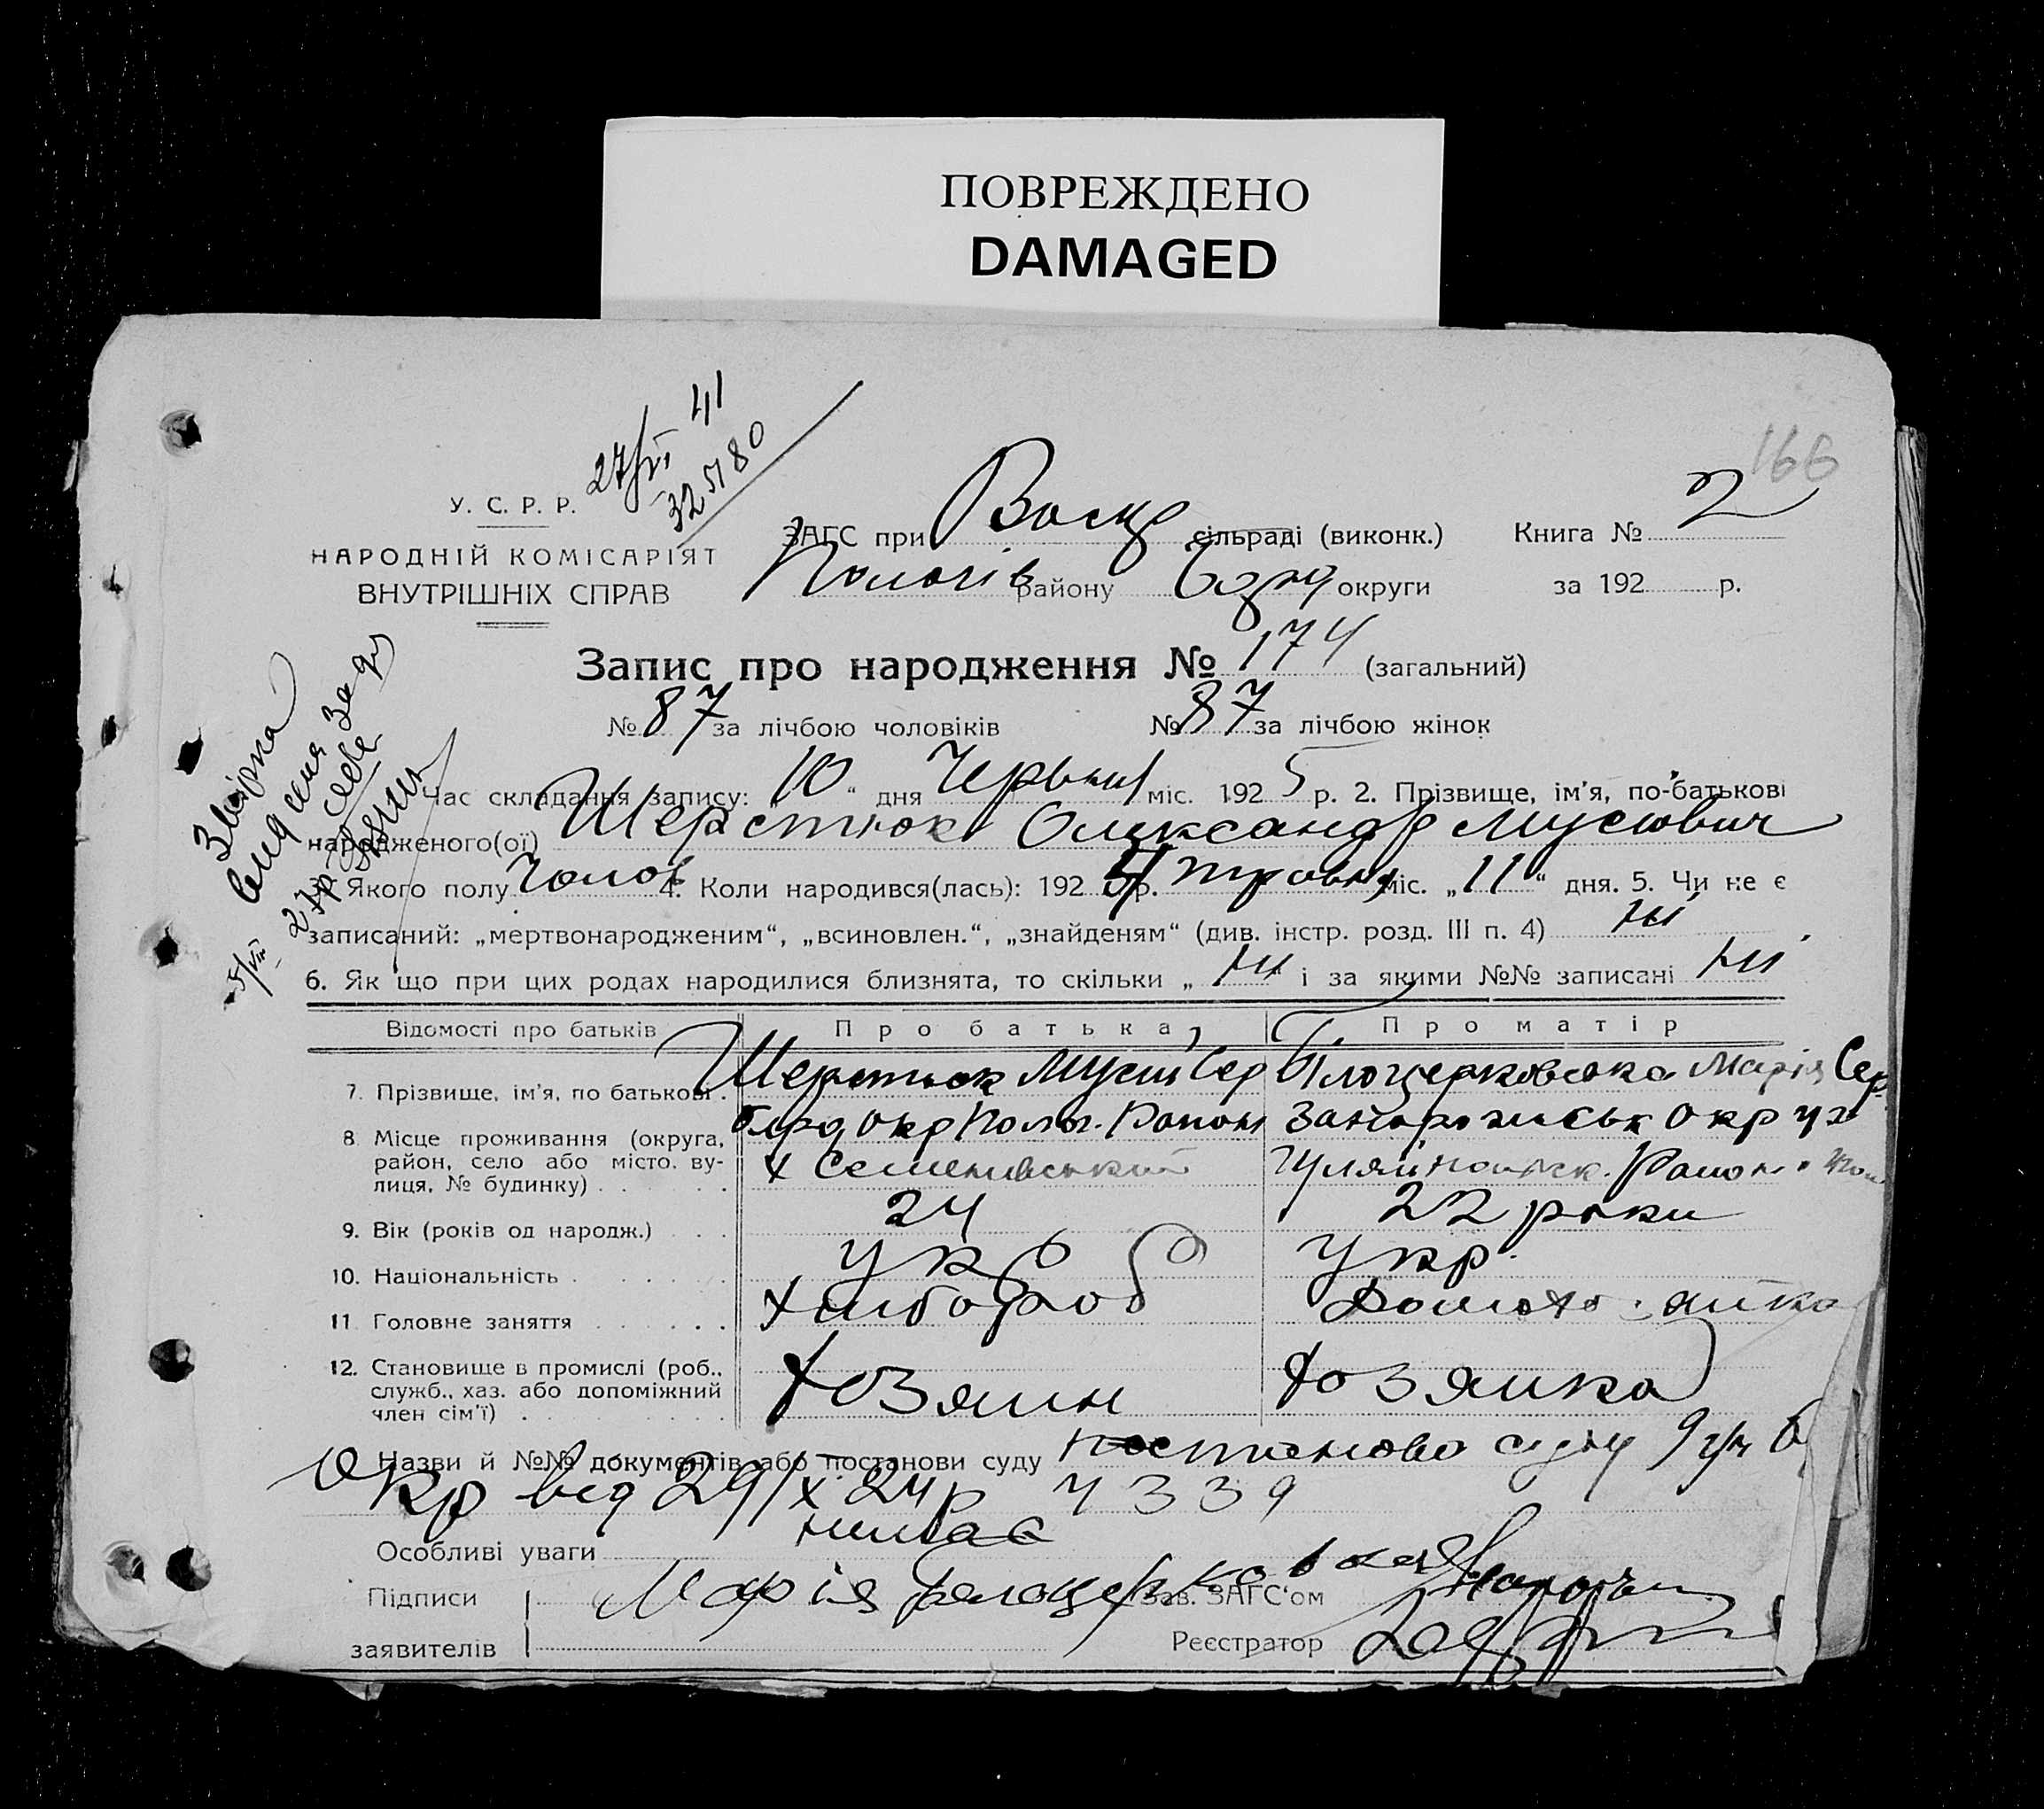 ПОВРЕЖДЕНО
DAMAGED
166
27/VI 41
325180
У. С. Р. Р.
НАРОДНІЙ КОМІСАРІЯТ
ВНУТРІШНІХ СПРАВ
ЗАГС при Воскр сільраді (виконк.) Книга № 2
Пологів району Бердя округи за 192 р.
Запис про народження № 174 (загальний)
№ 87 за лічбою чоловіків № 87 за лічбою жінок
Час складання запису: „10“ дня Червня міс. 1925 р. 2. Прізвище, ім’я, по-батькові
народженого(ої) Шерстюк Олександр Мусієвич
3. Якого полу Чолов 4. Коли народився(лась): 1924 р. травня міс. „11“ дня. 5. Чи не є
записаний: „мертвонародженим“, „всиновлен.“, „знайденям“ (див. інстр. розд. III п. 4) ні
6. Як що при цих родах народилися близнята, то скільки „ ні і за якими №№ записані ні
Відомості про батьків Про батька Про матір
7. Прізвище, ім’я, по батькові Шерстюк Мусій Сер Білоцерковська Марія Сер
8. Місце проживання (округа, район, село або місто, вулиця, № будинку) Берд Окр Полог. Район Запорожськ Округ
х Семенівський Гуляйпольск. Район
9. Вік (років од народж.) 24 22 роки
10. Національність укр укр.
11. Головне заняття хлібороб
12. Становище в промислі (роб., служб., хаз. або допоміжний член сім’ї) хозяин хозяйка
Назви й №№ документів або постанови суду постанова суду 9 уч Б
Окр від 29/X 24 р 4339
Особливі уваги немає
Підписи Марія Белоцерковская Зав. ЗАГС‘ом
заявителів Реєстратор